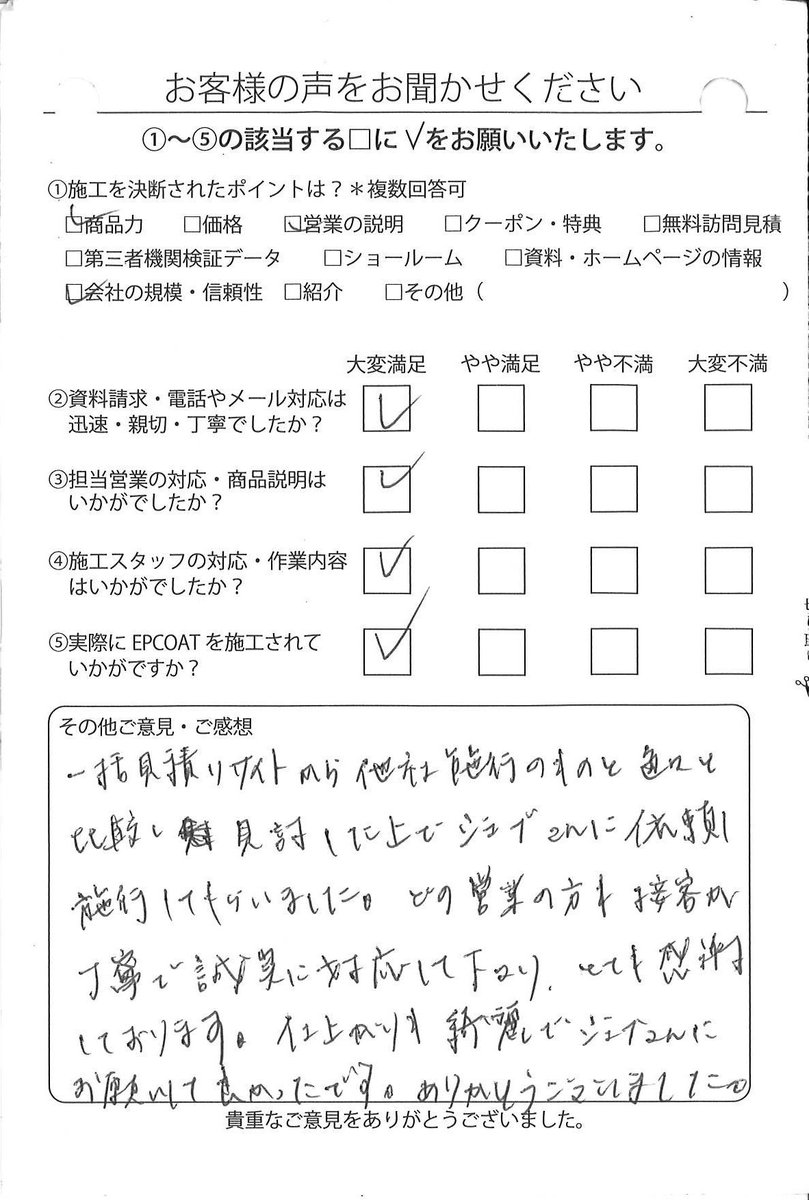 お客様の声をお聞かせください
①～⑤の該当する□に√をお願いいたします。
①施工を決断されたポイントは？＊複数回答可
□商品力 □価格 □営業の説明 □クーポン・特典 □無料訪問見積
□第三者機関検証データ □ショールーム □資料・ホームページの情報
□会社の規模・信頼性 □紹介 □その他（ ）
大変満足 やや満足 やや不満 大変不満
②資料請求・電話やメール対応は
迅速・親切・丁寧でしたか？
③担当営業の対応・商品説明は
いかがでしたか？
④施工スタッフの対応・作業内容
はいかがでしたか？
⑤実際に EPCOAT を施工されて
いかがですか？
その他ご意見・ご感想
一括見積りサイトから他社施行のものと色々と
比較し 見討した上でジェブさんに依頼し
施行してもらいました。どの営業の方も接客が
丁寧で誠実に対応して下さり、とても感謝
しております。仕上がりも綺麗でジェブさんに
お願いして良かったです。ありがとうございました。
貴重なご意見をありがとうございました。